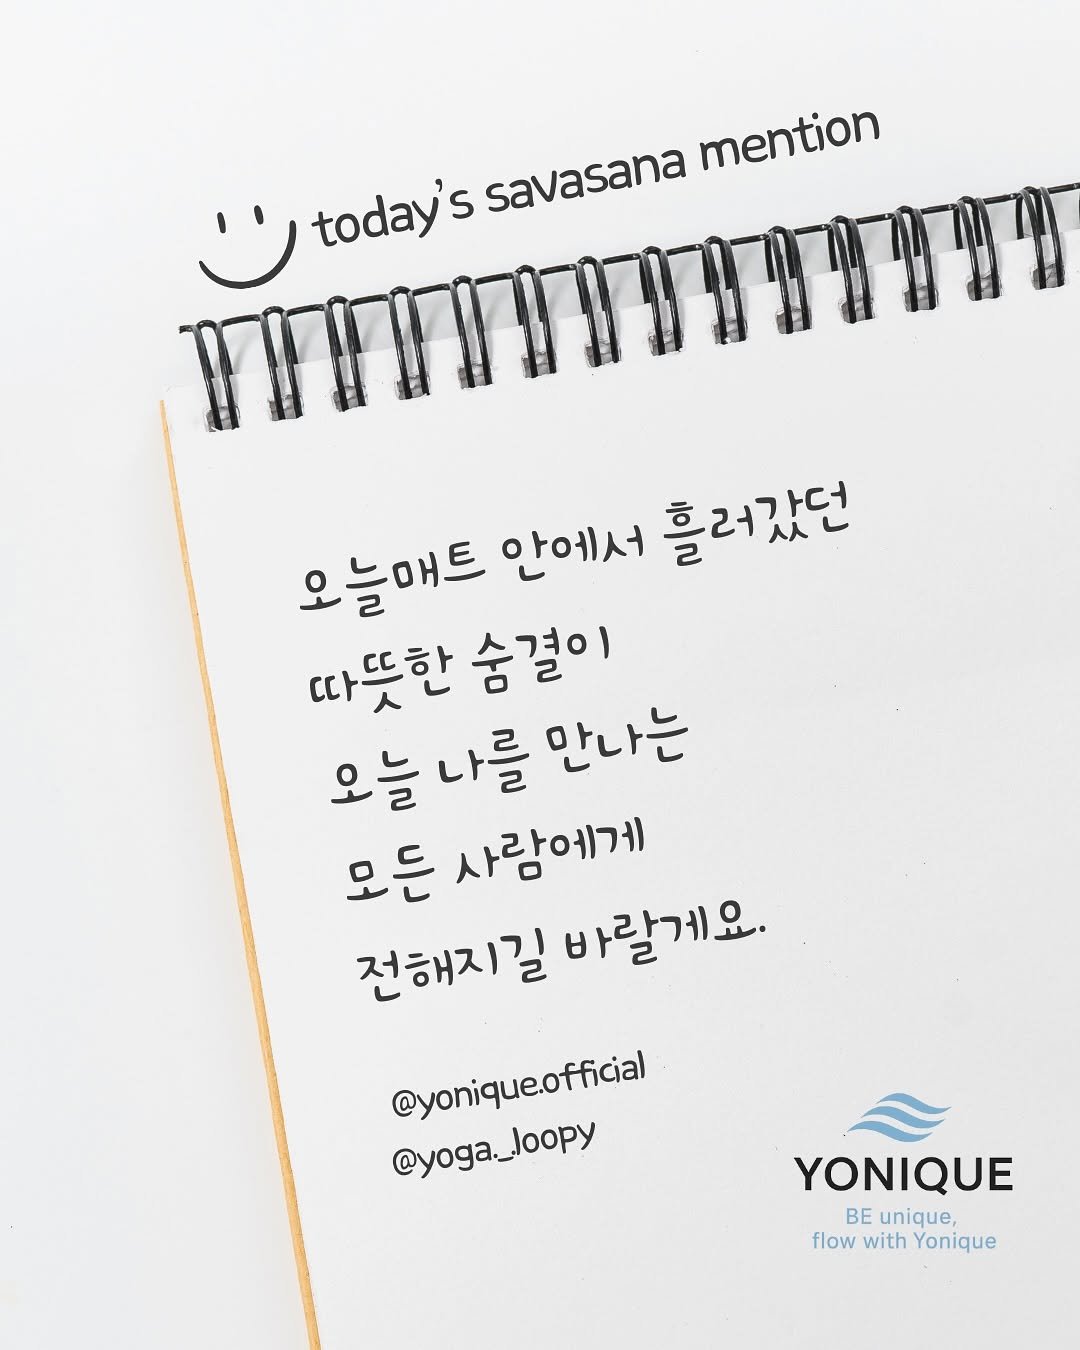 today's savasana mention
오늘매트 안에서 흘러갔던
따뜻한 숨결이
오늘 나를 만나는
모든 사람에게
전해지길 바랄게요.
@yonique.official
@yoga._.loopy
YONIQUE
BE unique,
flow with Yonique